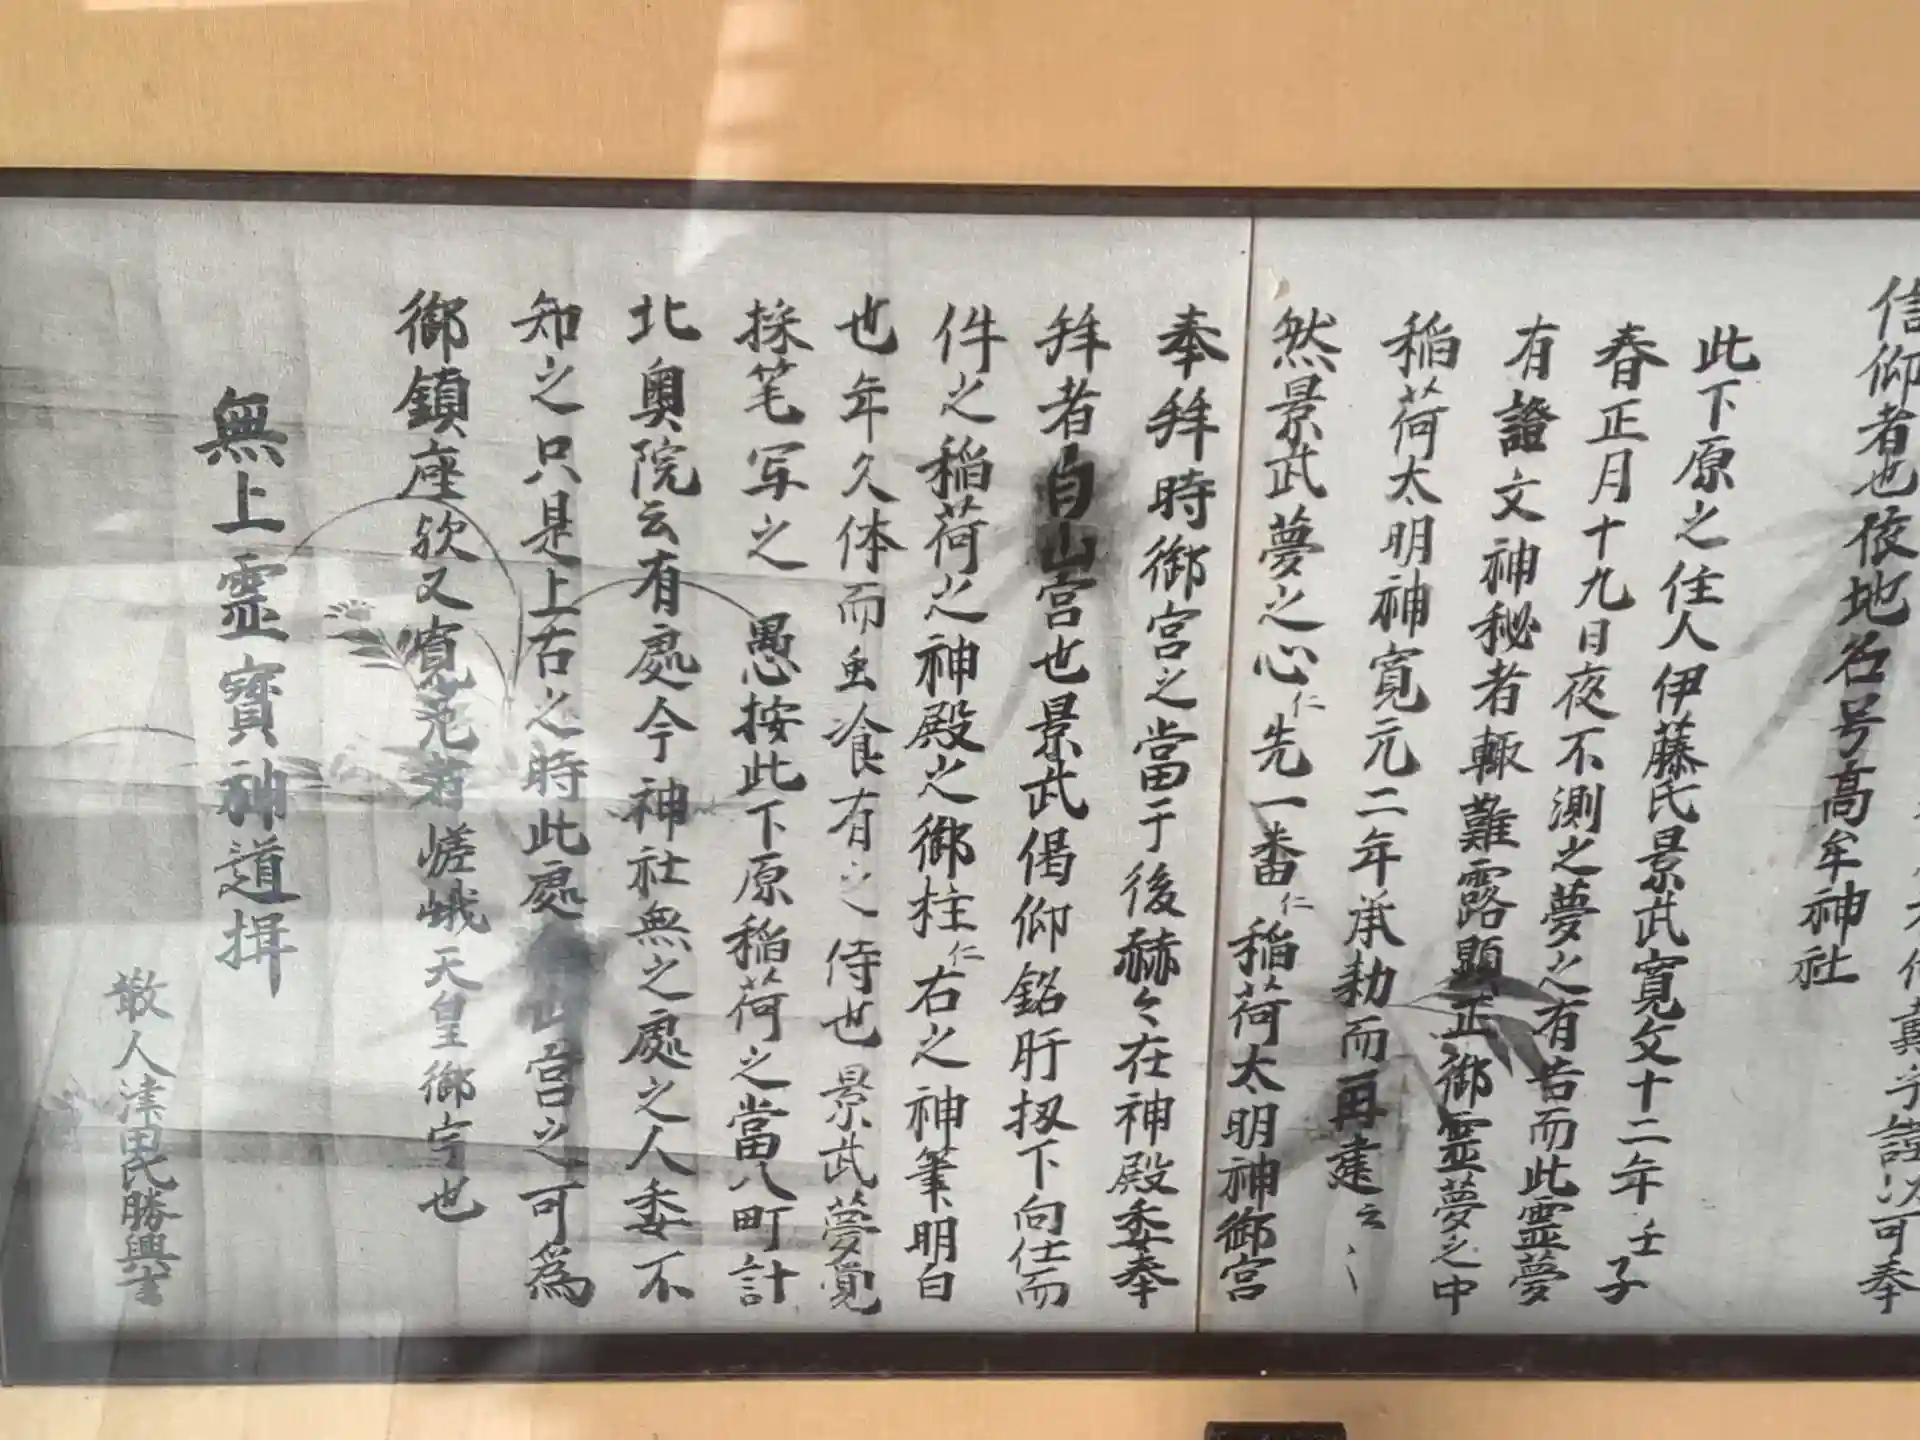 信仰者也依地名号髙牟神社
此下原之住人伊藤氏景武寛文十二年壬子
春正月十九日夜不測之夢之有告而此霊夢
有證文神秘者輙難露顕正御霊夢之中
稲荷太明神寛元二年承勅而再建云々
然景武夢之心仁先一番仁稲荷太明神御宮
奉拜時御宮之當于後赫々在神殿委奉
拜者白山宮也景武偈仰銘肝扨下向仕而
件之稲荷之神殿之御柱仁右之神筆明白
也年久体而虫飡有之侍也景武夢覚
採笔写之 愚按此下原稲荷之當八町計
北奥院云有處今神社無之處之人委不
知之只是上右之時此處白山宮之可為
御鎮座欤又寛 若嵯峨天皇御宇也
無上霊寳神道揖
散人 勝興書